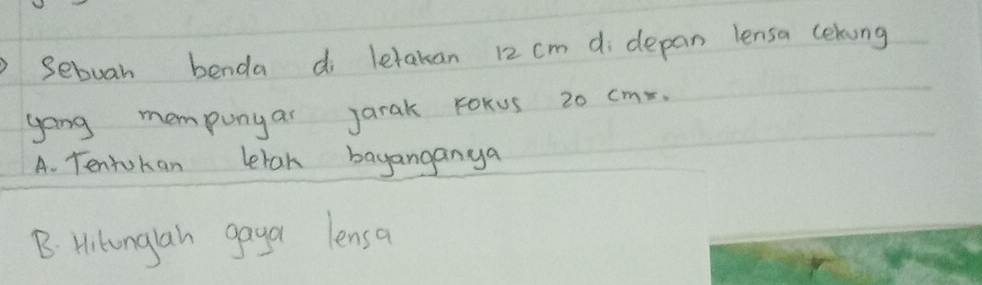 Sebuah benda di letakan 12 cm di depan lensa cekung
yang mempunyai jarak fokus 20 cm.
A. Tentukan letak bayanganya
B. Hitunglah gaya lensa